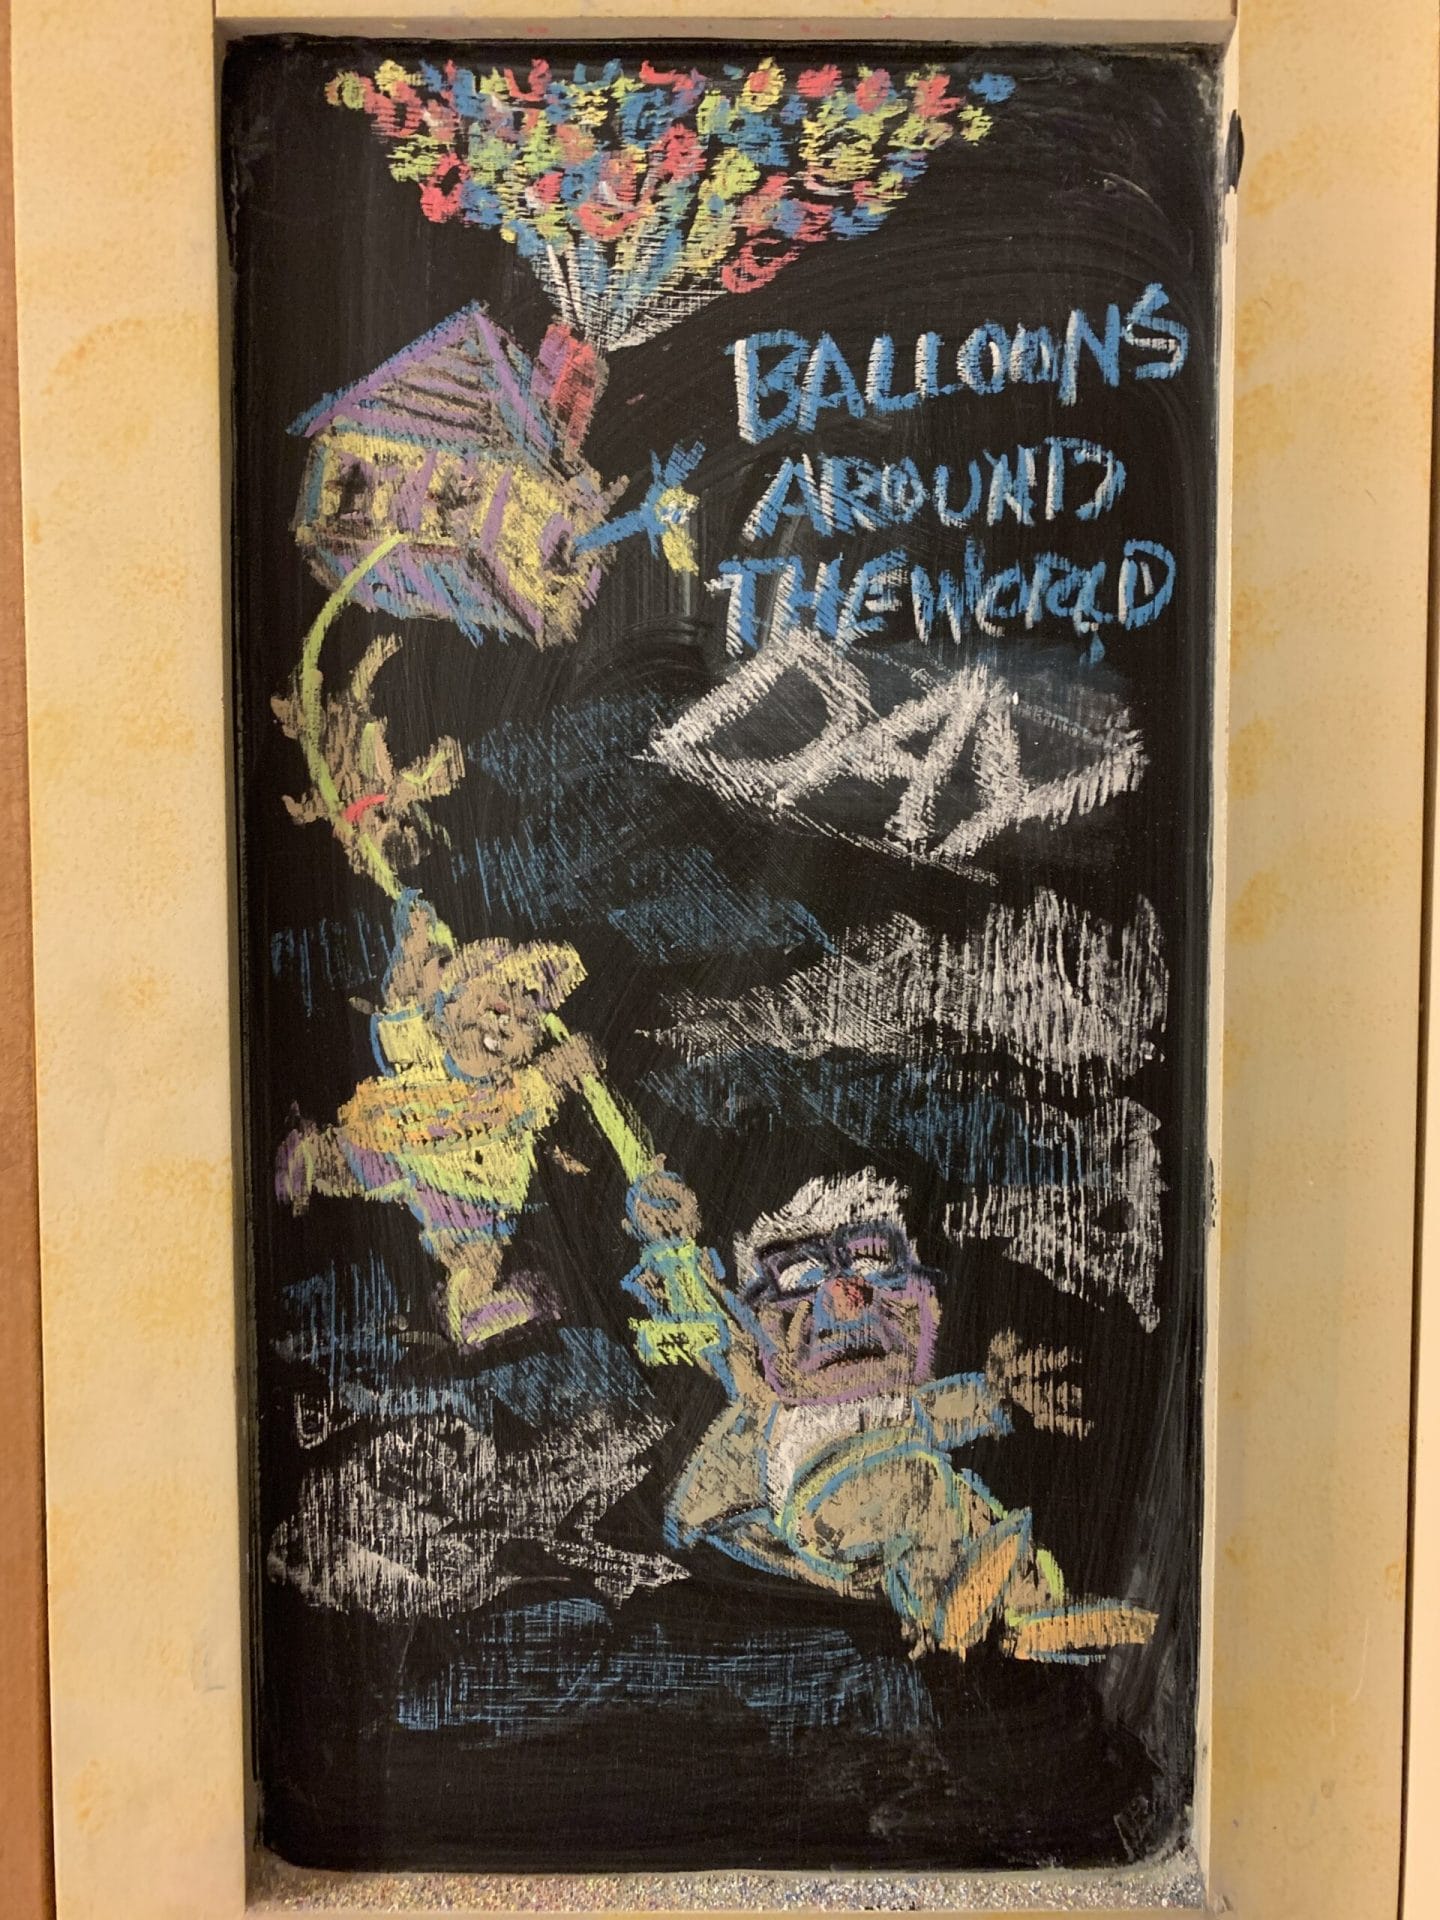 BALLOONS
AROUND
THE WORLD
DAD